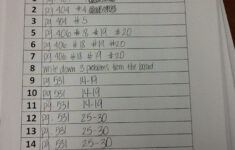 2 pg 404 #4
3 pg 404 #5
5 pg 406 #18 #19 #20
6 pg 406 #18 #19 #20
7 pg 406 #18 #19 #20
8 Write down 3 problems from the board
9 pg 531 14-19
10 pg 531 14-19
11 pg 531 14-19
12 pg 531 25-30
13 pg 531 25-30
14 pg 531 25-30